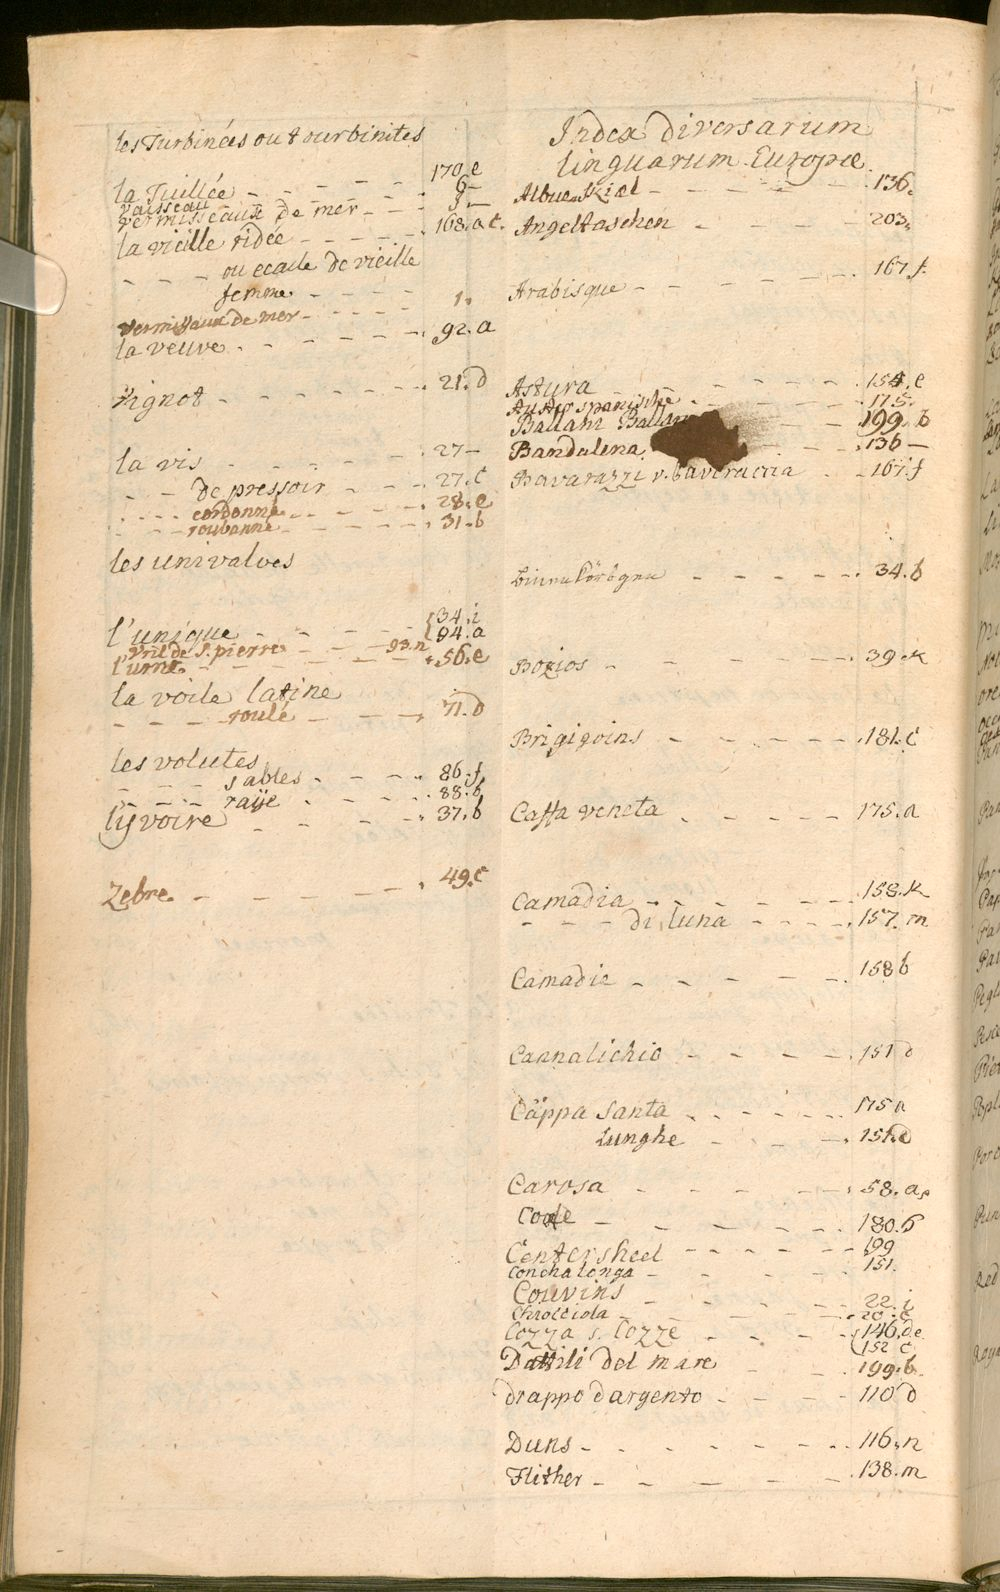 les Turbinées ou tourbinites
la Tuillée - - - - - 170.e
vaisseau - - - - 6-
vermisseaux de mer - - - 3.-
la vieille ridée - - - - - 168.a c.
- - - ou ecaille de vieille
femme - - - -
vermisseaux de mer - - - - - 1.
la veuve - - - - - - 92.a
Vignot - - - - - - 21.d
la vis - - - - - - 27-
- - de pressoir - - - - 27.c
- - - cordonné - - - - 28.e
- - - roubanné - - - - 31.b
les univalves
l'unique - - - - - {34.i
{94.a
l'urne - - - - - - 56.e
la voile latine
- - - roulé - - - - 71.d
les volutes
- - - sables - - - - 86.f
- - - raije - - - - 88.b
l'ijvoire - - - - - 37.b
Zebre - - - - - 49.c
Index diversarum
linguarum Europæ
- - - - - 136.
Angeltaschen - - - - 203.
Arabisque - - - - - 167.f.
Astura - - - - - 154.e
- - - 175.
Ballani - - 199.b
Bandalena - - 136-
Bavarazzi v. baveraccia - - 167.f
- - - - - 34.b
Bozios - - - - - 39.k
Brigigoins - - - - - 181.c
Caffa veneta - - - - - 175.a
Camadia - - - - - 158.k
- - - di luna - - - - 157.m
Camadie - - - - - 158b
Cannalichio - - - - - 151d
Cappa santa - - - - - 175a
Lunghe - - - - 151.d
Carosa - - - - - 58.a.
- - - - - 180.b
Centersheel - - - - - 199
Concha longa - - - - 151.
Couvins - - - - - 22.i
Chiocciola - - - - - 20.c
Cozza s. Cozze - - - - {146.de
{152 c
Dattili del mare - - - 199.b.
drappo d'argento - - - - 110 d
Duns - - - - - - 116.n
Flither - - - - - - 138.m